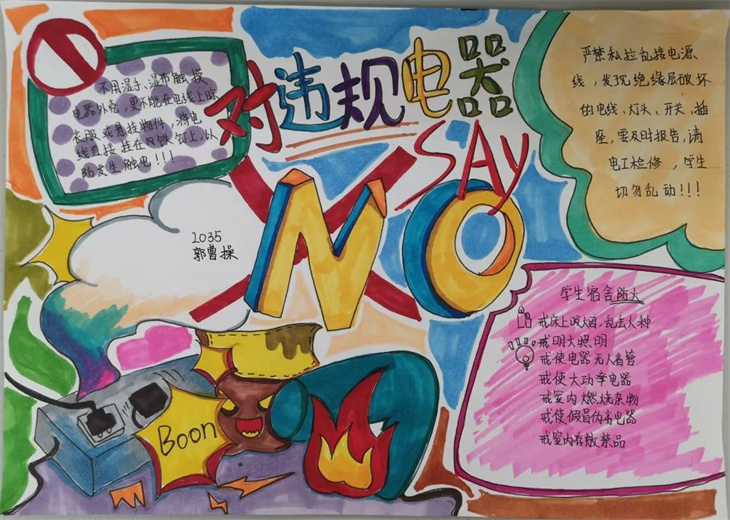 对违规电器
SAY
NO
不用湿手、湿布触摸
电器外壳，更不能在电线上晾
衣服或悬挂物件，将电
线直接挂在铁钉上，以
防发生触电!!!
严禁私拉乱接电源、
线，发现绝缘层破坏
的电线、灯头、开关、插
座，要及时报告，请
电工检修，学生
切勿乱动!!!
1035
郭曹操
学生宿舍防火
戒床上吸烟，乱丢火种
戒明火照明
戒使电器无人看管
戒使大功率电器
戒室内燃烧杂物
戒使假冒伪劣电器
戒室内存散禁品
Boon